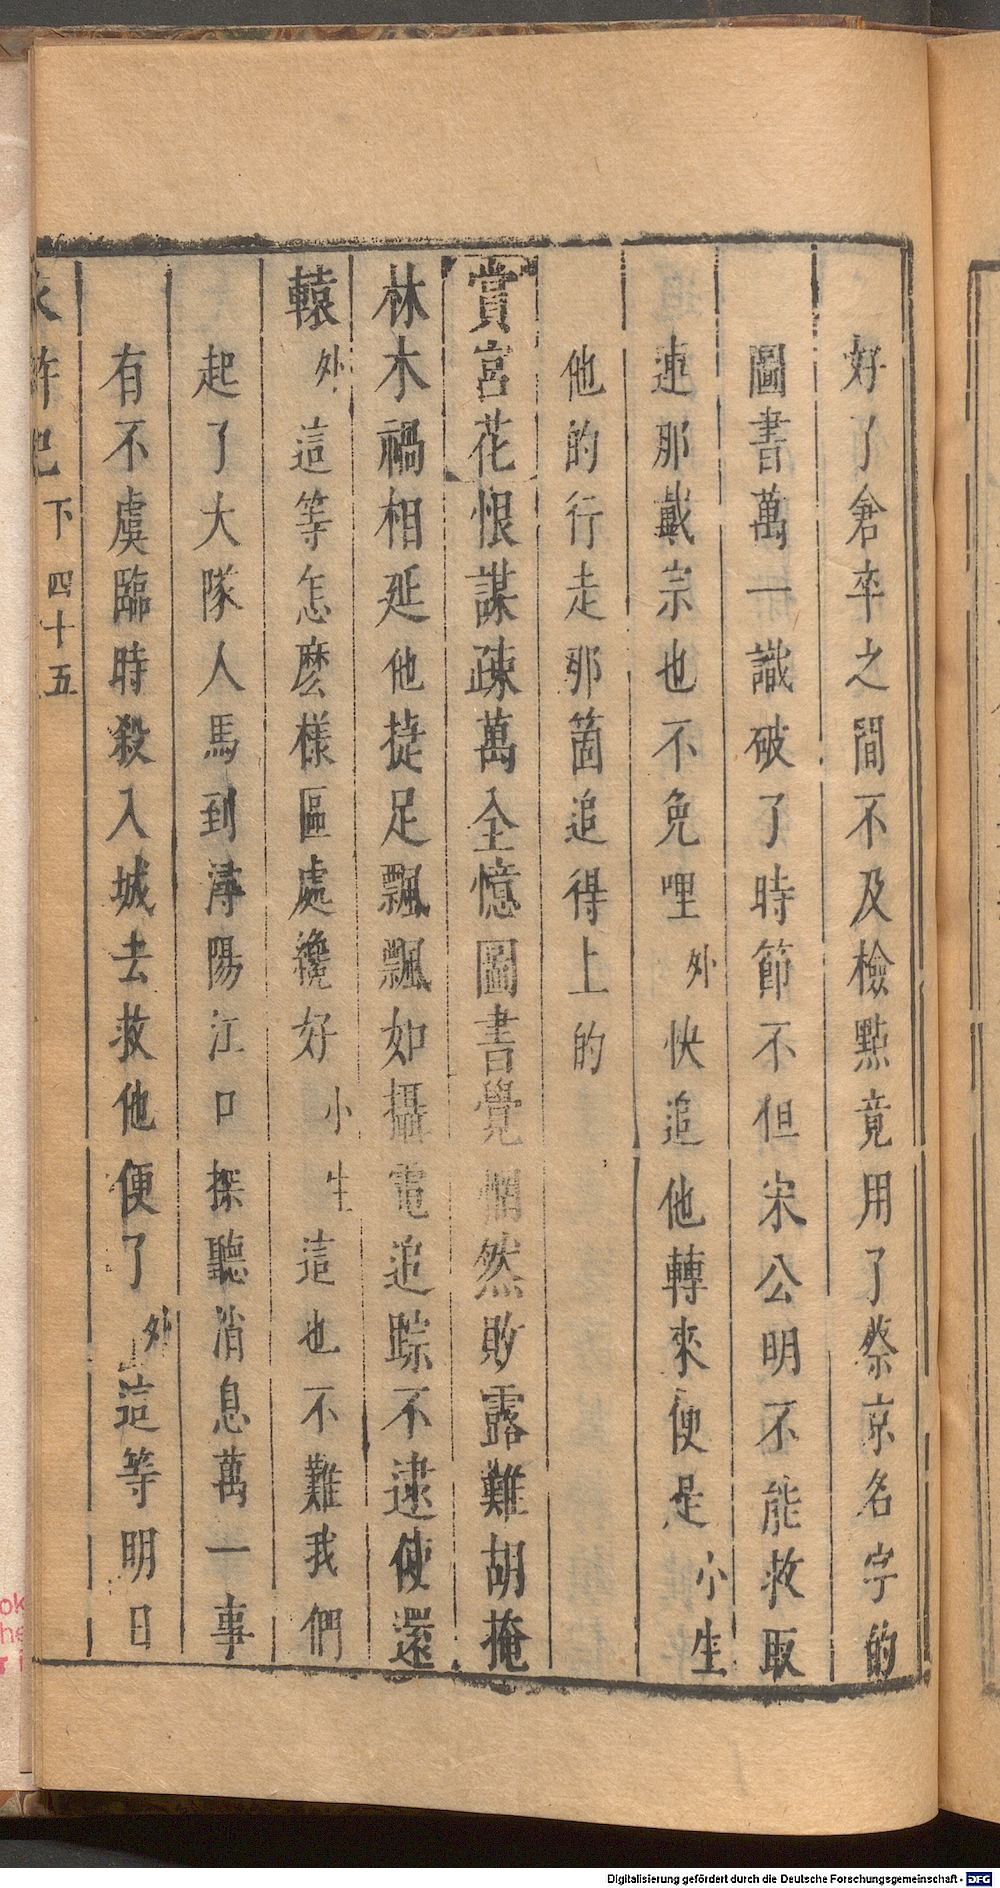 好了倉卒之間不及檢點竟用了蔡京名字的
圖書萬一識破了時節不但宋公明不能救取
連那戴宗也不免哩外快追他轉來便是小生
他的行走那箇追得上的
賞宮花恨謀疎萬全憶圖書覺惘然敗露難胡掩
林木禍相延他捷足飄飄如攝電追踪不逮使還
轅外這等怎麽樣區處纔好小生這也不難我們
起了大隊人馬到潯陽江口探聽消息萬一事
有不虞臨時殺入城去救他便了外這等明日
水滸記 下 四十五
Digitalisierung gefördert durch die Deutsche Forschungsgemeinschaft - DFG